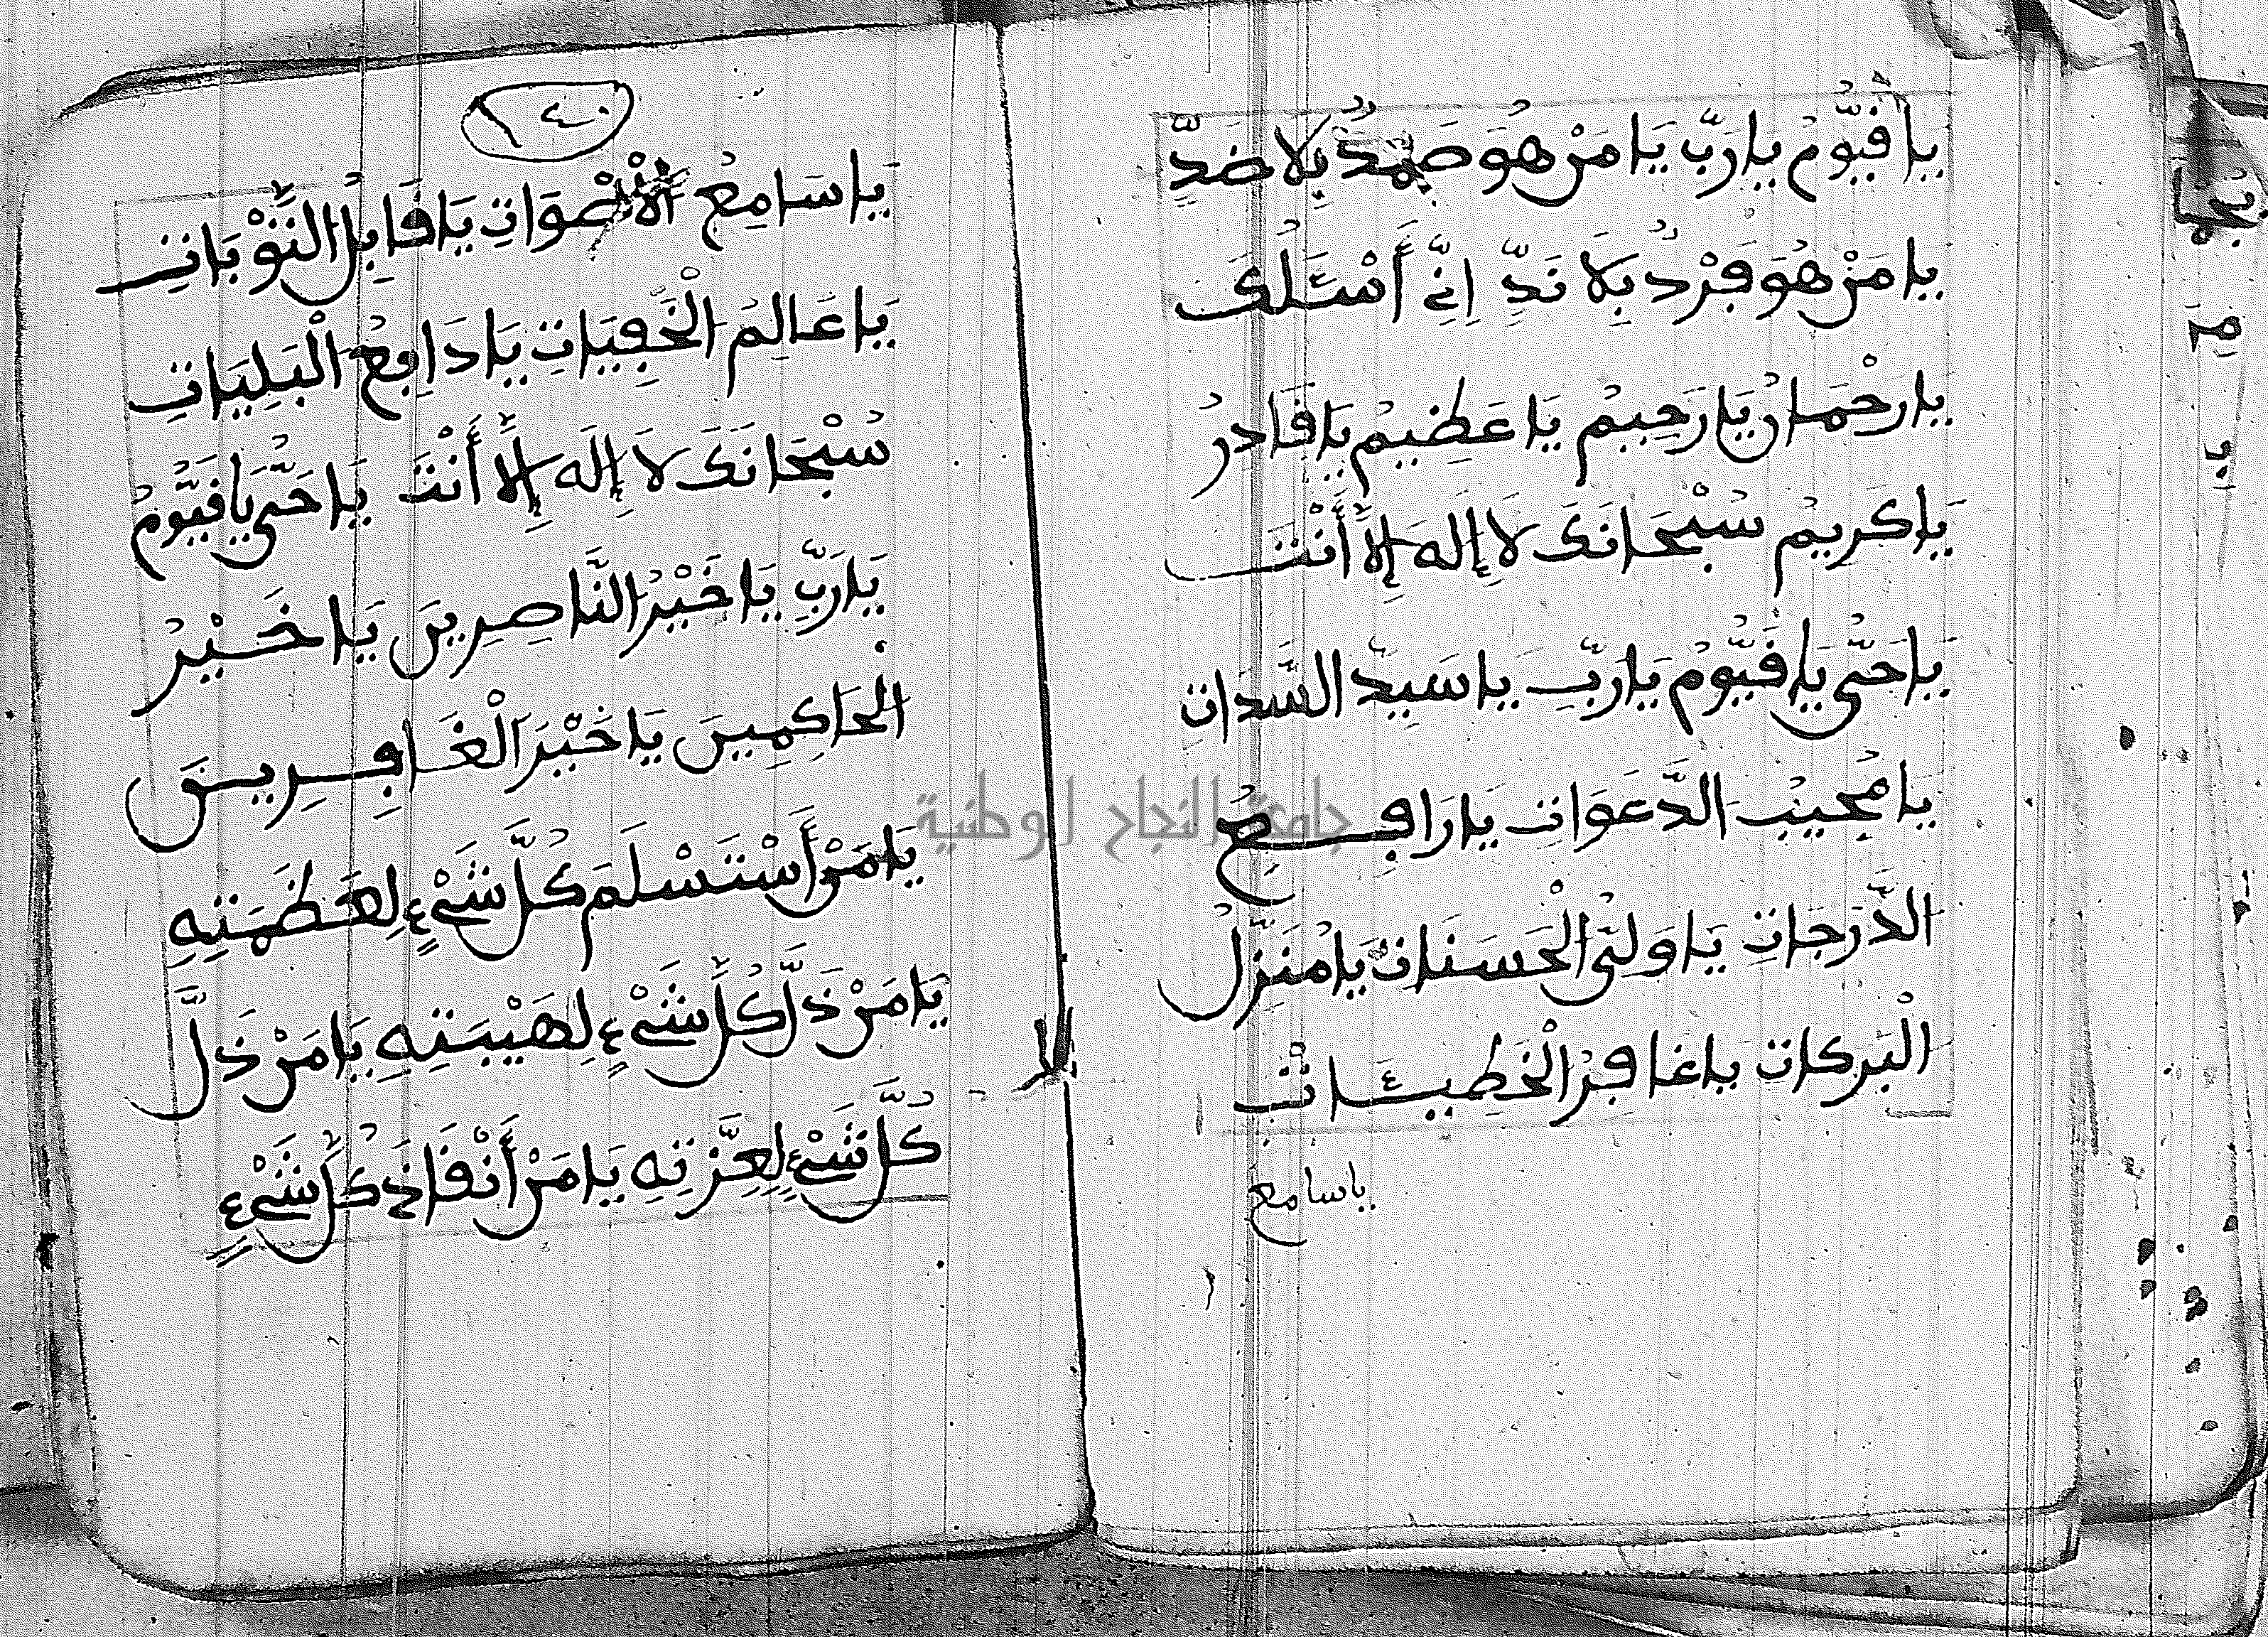 يَا قَيُّومُ يَا رَبِّ يَا مَنْ هُوَ صَمَدٌ بِلَا ضِدٍّ
يَا مَنْ هُوَ فَرْدٌ بِلَا نَدٍّ اِنِّي أَسْئَلُكَ
يَا رَحْمَانُ يَا رَحِيمُ يَا عَظِيمُ يَا قَادِرُ
يَا كَرِيمُ سُبْحَانَكَ لَا إِلَهَ إِلَّا أَنْتَ
يَا حَيُّ يَا قَيُّومُ يَا رَبِّ يَا سَيِّدَ السَّدَات
يَا مُجِيبُ الدَّعَوَاتِ يَا رَافِعُ
الدَّرَجَاتِ يَا وَلِيُّ الْحَسَنَاتِ يَا مُنَزِّلُ
الْبَرَكَاتِ يَا غَافِرُ الْخَطِيئَاتِ
يا سامع
٢٤٠
يَا سَامِعُ الْأَصْوَاتِ يَا قَابِلُ التَّوْبَاتِ
يَا عَالِمُ الْخَفِيَاتِ يَا دَافِعُ الْبَلِيَاتِ
سُبْحَانَكَ لَا إِلَهَ إِلَّا أَنْتَ يَا حَيُّ يَا قَيُّومُ
يَا رَبِّ يَا خَيْرُ النَّاصِرِينَ يَا خَيْرُ
الْحَاكِمِينَ يَا خَيْرَ الْغَافِرِينَ
يَا مَنْ أَسْتَسْلَمَ كُلُّ شَيْءٍ لِعَظَمَتِهِ
يَا مَنْ ذَلَّ كُلُّ شَيْءٍ لِهَيْبَتِهِ يَا مَنْ ذَلَّ
كُلُّ شَيْءٍ لِعِزَّتِهِ يَا مَنْ أَنْقَادَ كُلُّ شَيْءٍ
جامعة النجاح الوطنية